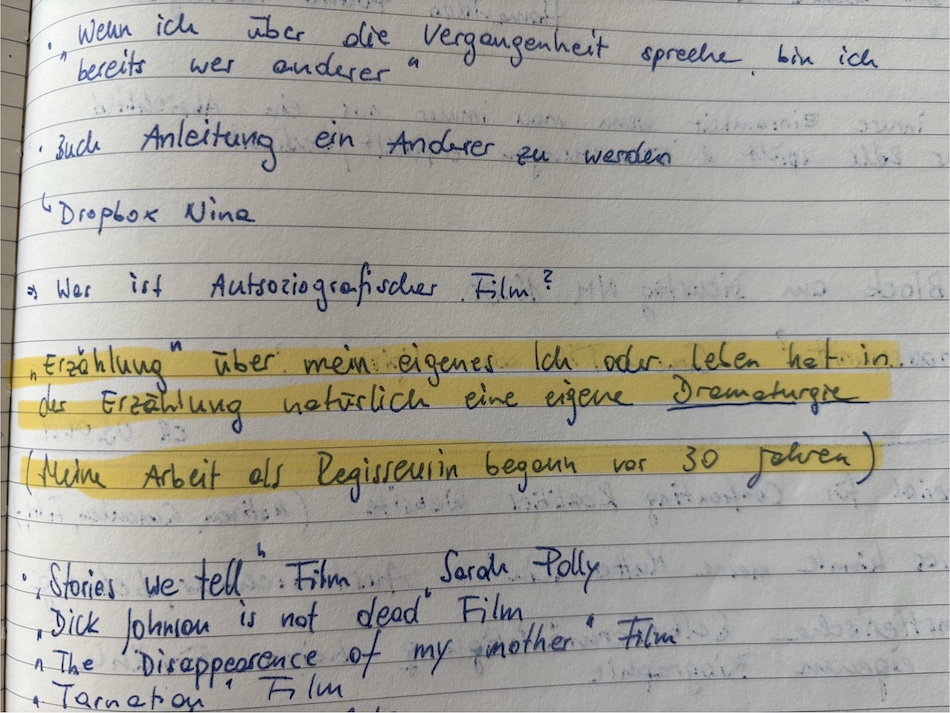 · „Wenn ich über die Vergangenheit spreche, bin ich
bereits wer anderer"
· Buch Anleitung ein Anderer zu werden
↳ Dropbox Nina
⇒ Was ist Autsoziografischer Film?
„Erzählung" über mein eigenes Ich oder leben hat in
der Erzählung natürlich eine eigene Dramaturgie
(Meine Arbeit als Regisseurin begann vor 30 Jahren)
· „Stories we tell" Film Sarah Polly
„Dick Johnson is not dead" Film
„The Disappearence of my mother" Film
„Tarnation" Film